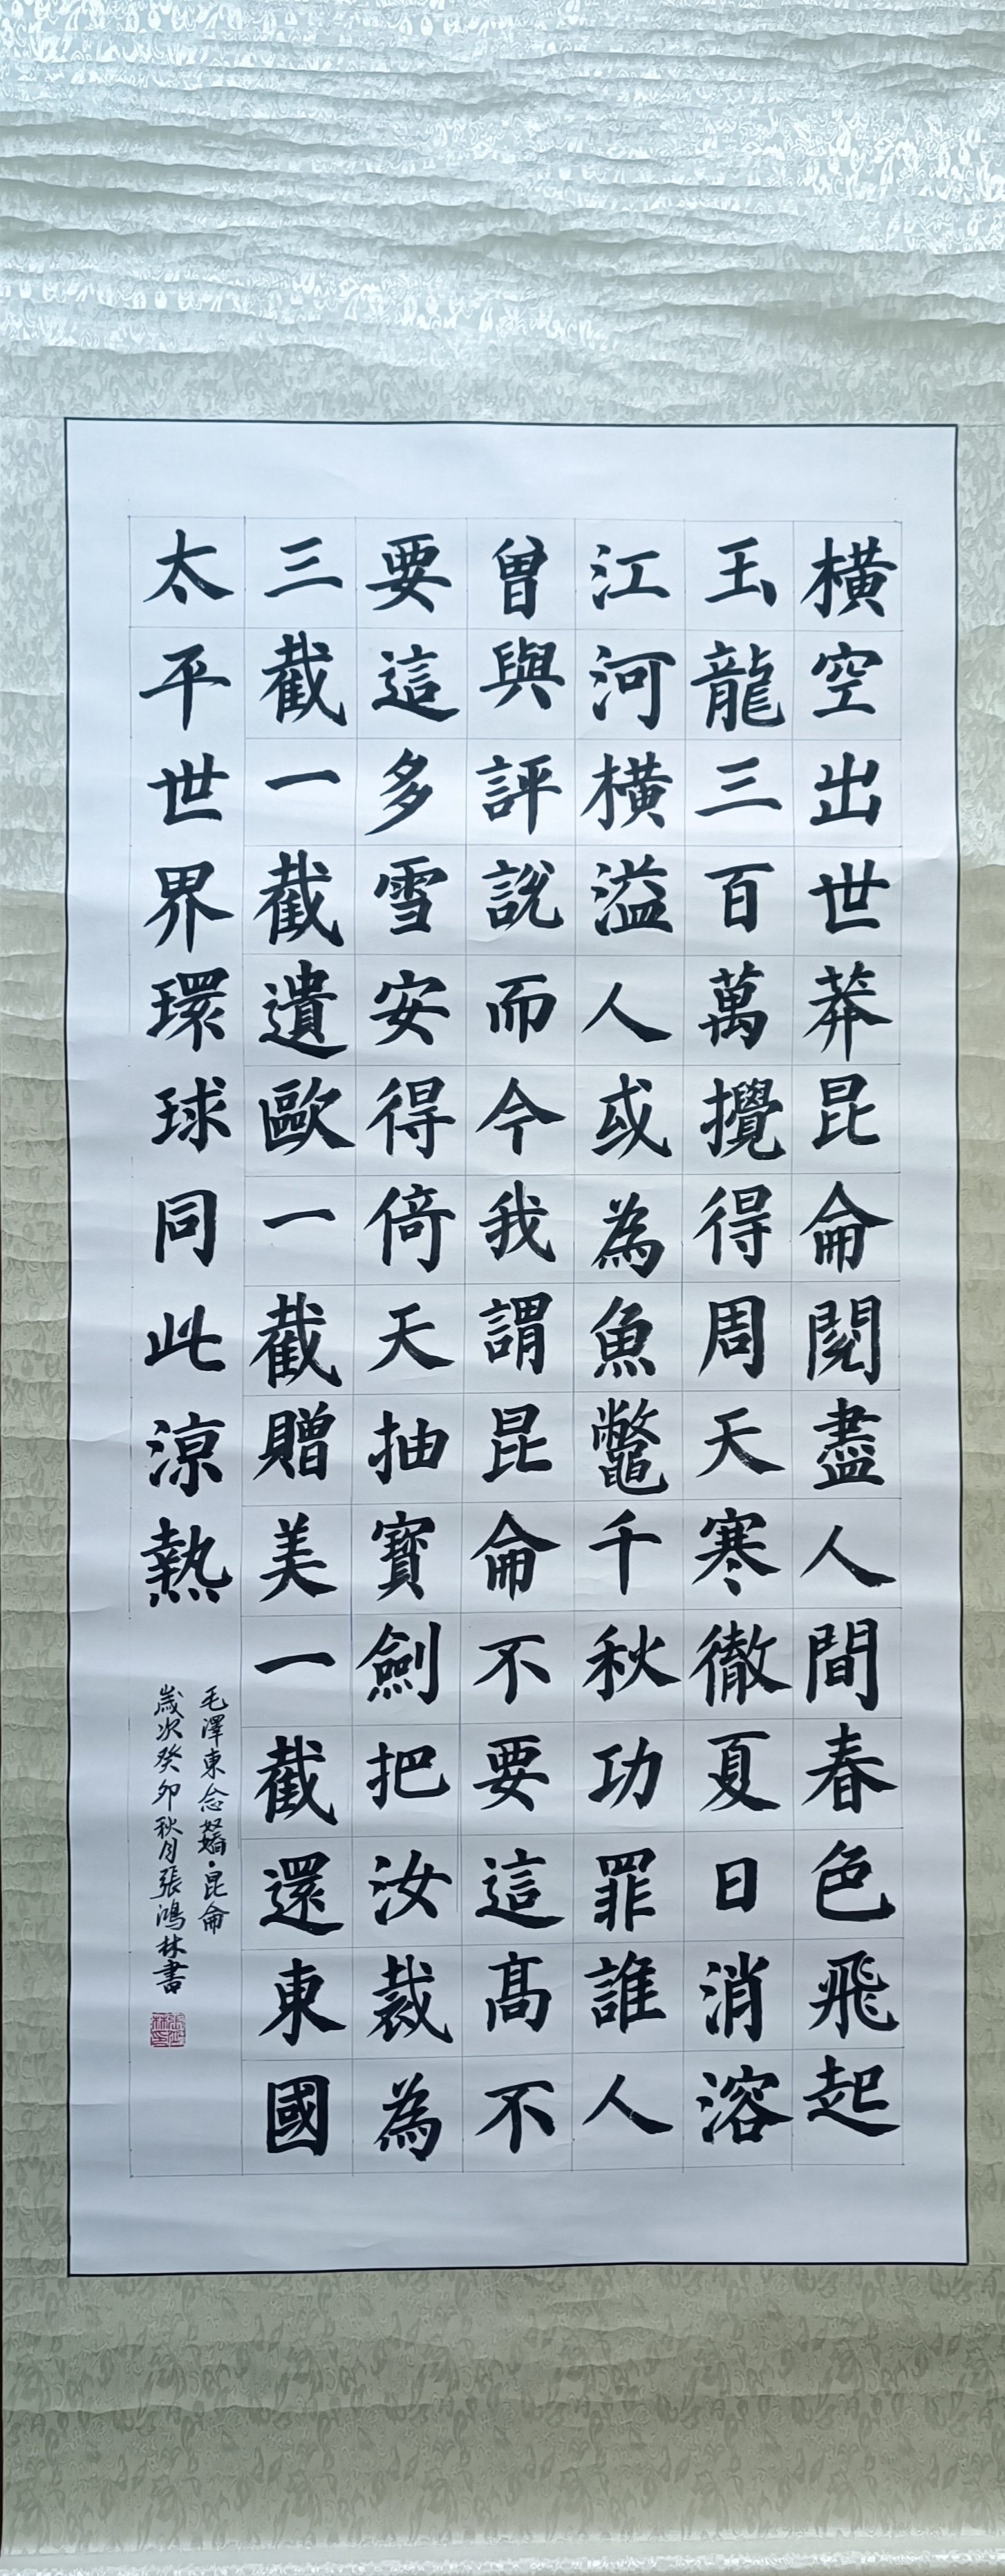 橫空出世莽昆侖閱盡人間春色飛起
玉龍三百萬攪得周天寒徹夏日消溶
江河橫溢人或為魚鼈千秋功罪誰人
曾與評說而今我謂昆侖不要這高不
要這多雪安得倚天抽寶劍把汝裁為
三截一截遺歐一截贈美一截還東國
太平世界環球同此涼熱
毛澤東念奴嬌·昆侖
歲次癸卯秋月張鴻林書